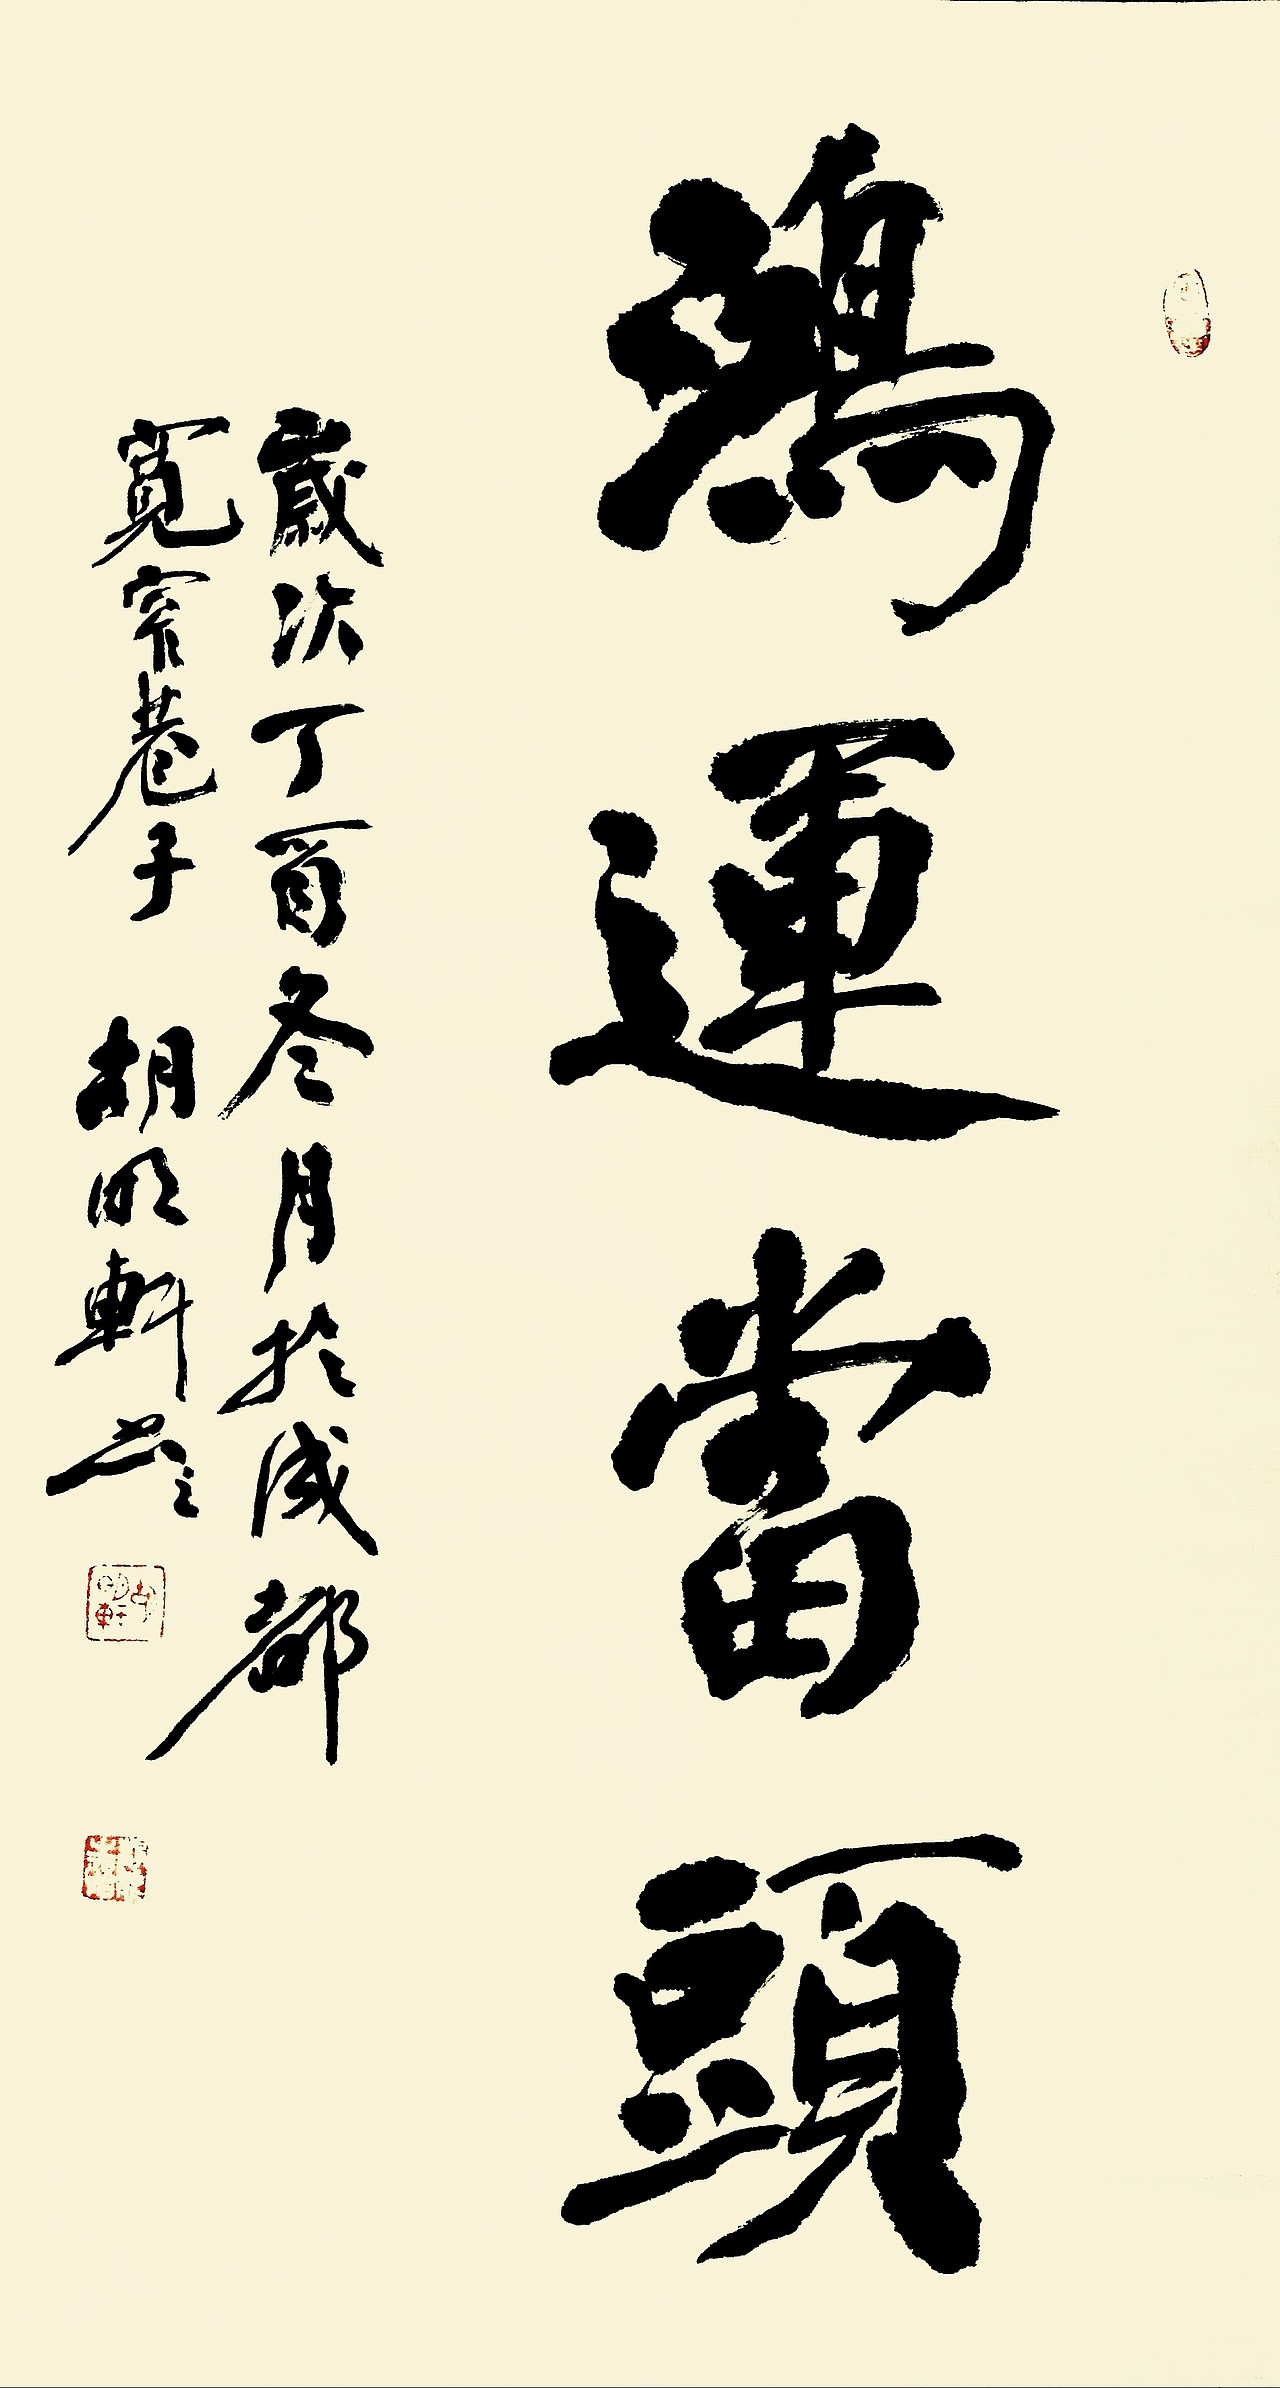 鴻運當頭
歲次丁酉冬月於成都
寬窄巷子 胡明軒